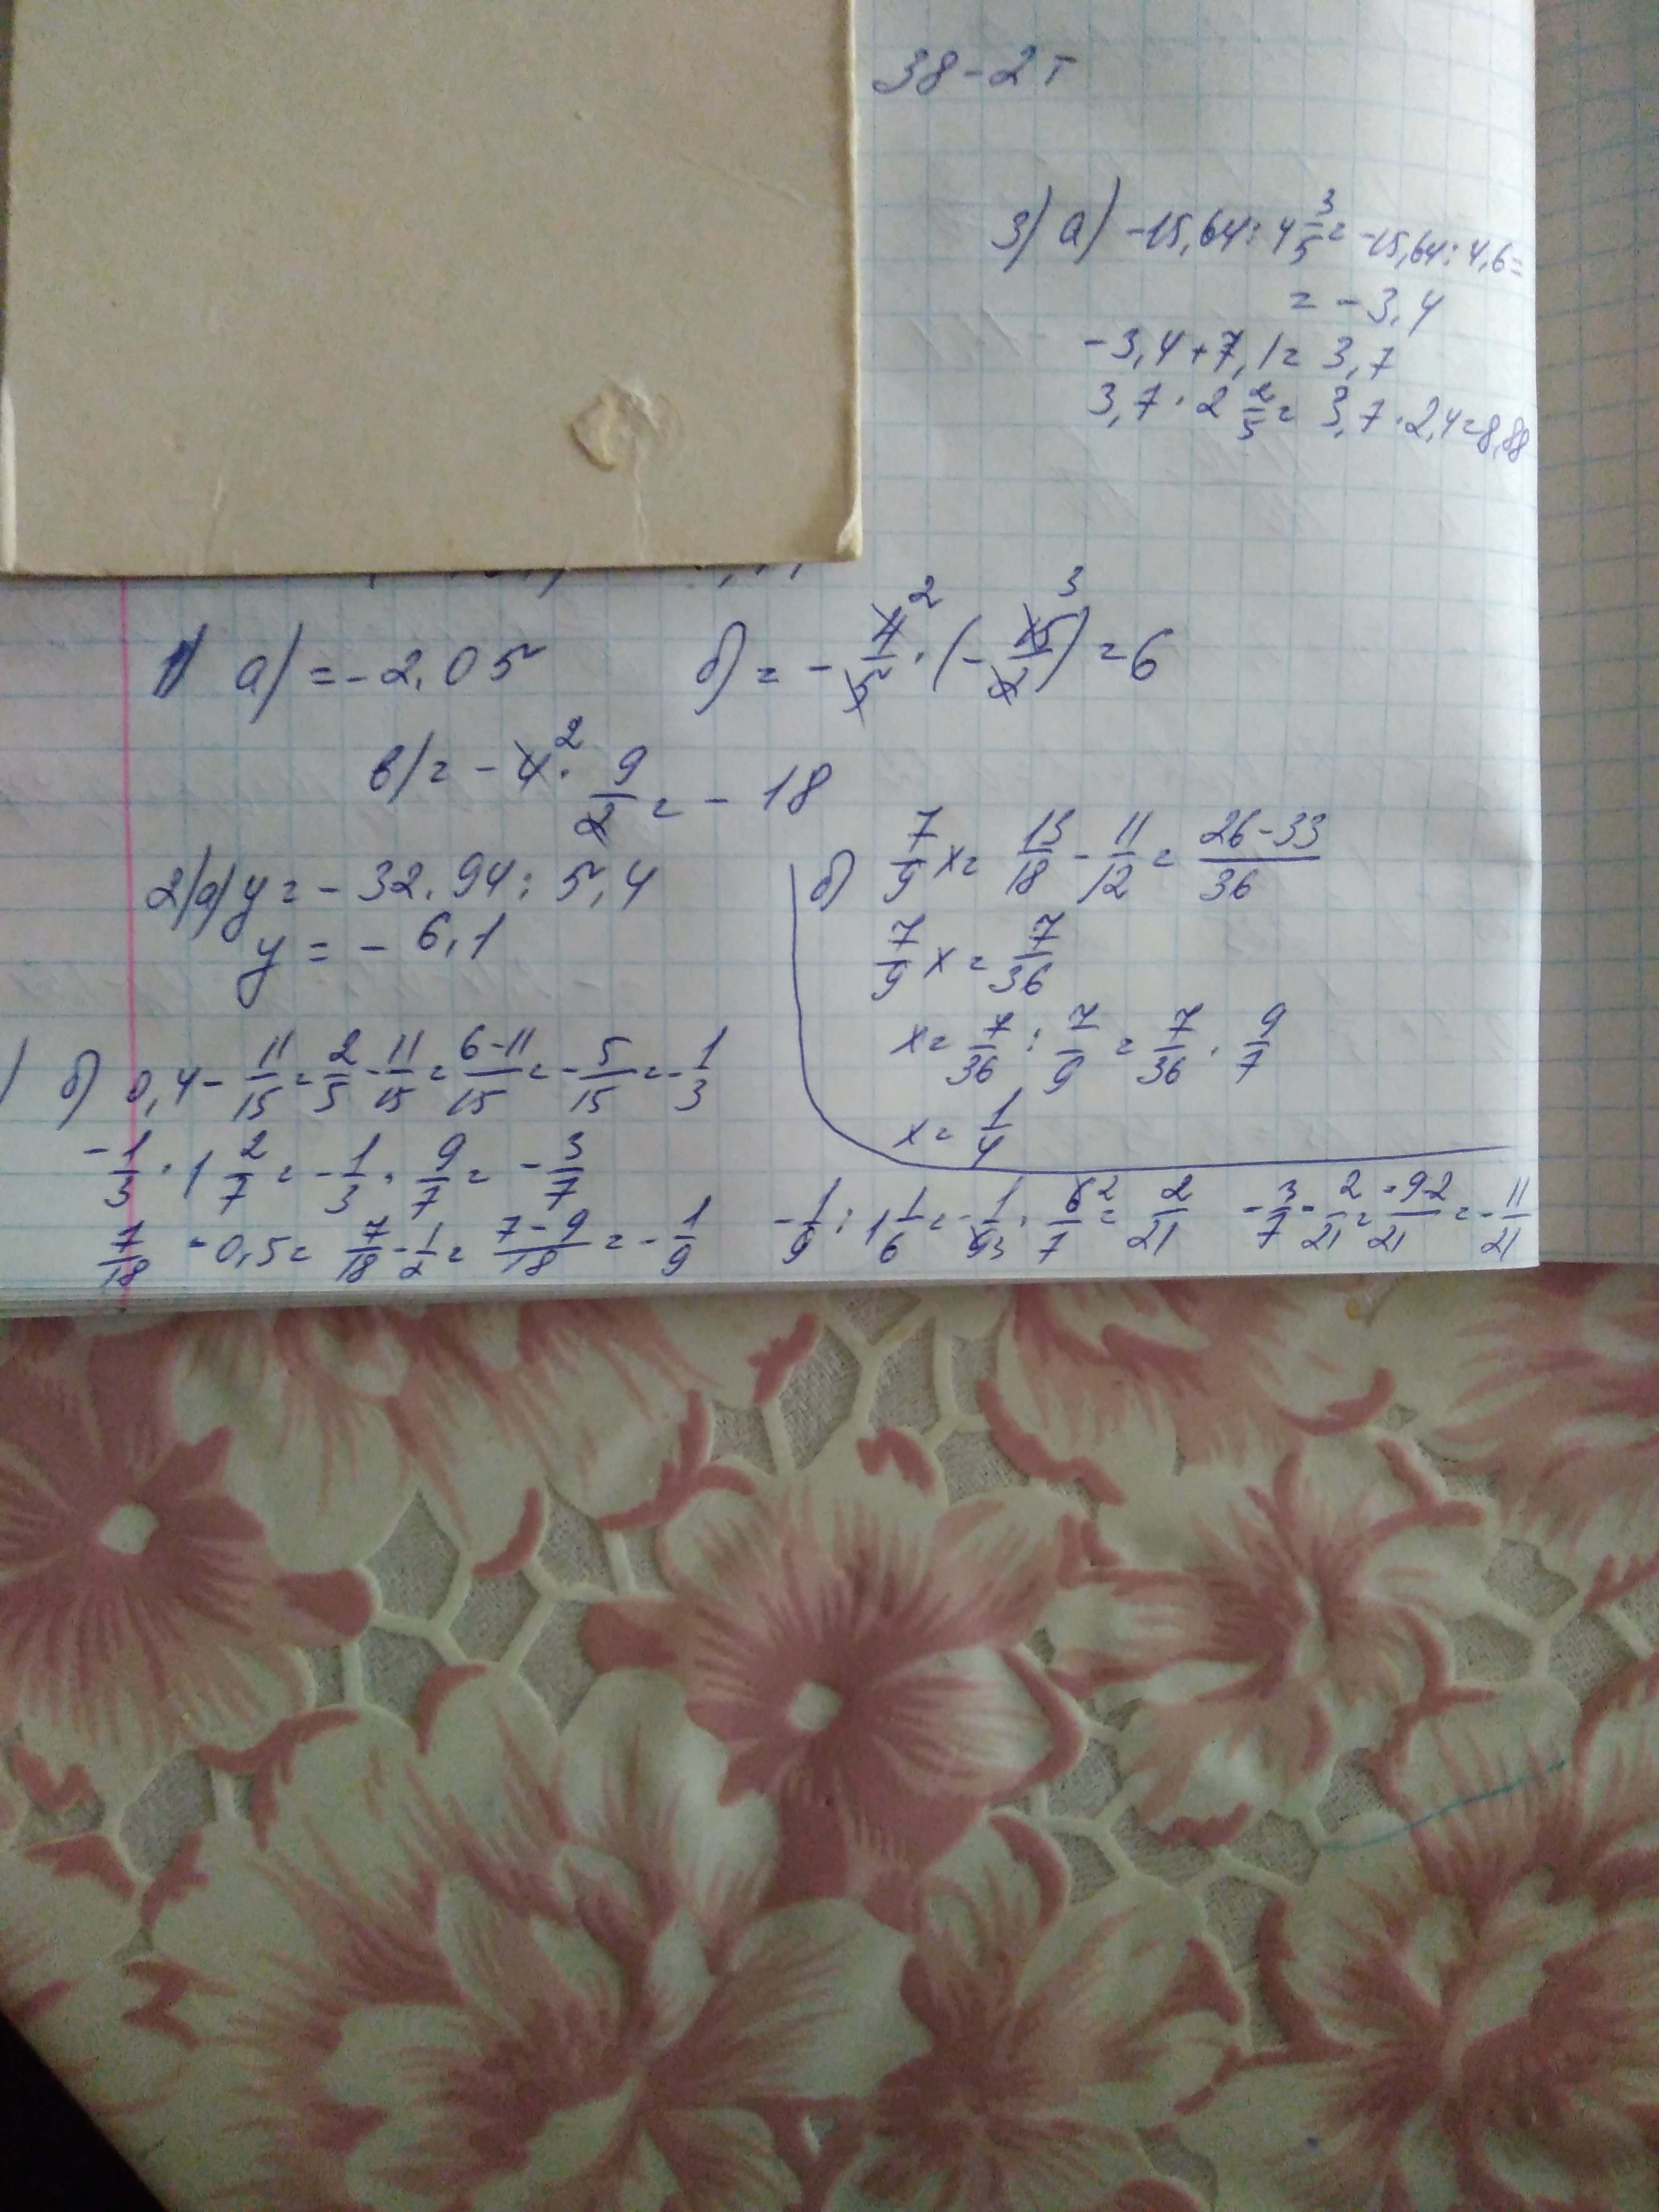 38-2т
3) а) -15,64 : 4 3/5 = -15,64 : 4,6 =
= -3,4
-3,4 + 7,1 = 3,7
3,7 · 2 2/5 = 3,7 · 2,4 = 8,88
1) а) = -2,05 б) = -4/5 · (-15/2) = 6 2 3
в) = -4 · 9/2 = -18 2
2) а) y = -32,94 : 5,4
y = -6,1
б) 7/9 x = 13/18 - 11/12 = 26-33/36
7/9 x = 7/36
x = 7/36 : 7/9 = 7/36 · 9/7
x = 1/4
) б) 0,4 - 11/15 = 2/5 - 11/15 = 6-11/15 = -5/15 = -1/3
-1/3 · 1 2/7 = -1/3 · 9/7 = -3/7
7/18 - 0,5 = 7/18 - 1/2 = 7-9/18 = -1/9
-1/9 : 1 1/6 = -1/9 3 · 6/7 2 = 2/21
-3/7 - 2/21 = -9-2/21 = -11/21